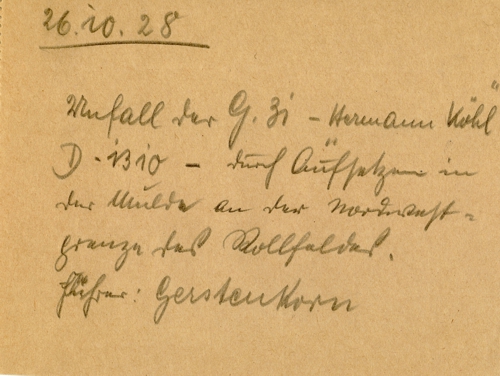 26.10.28
Unfall der G. 31 - Hermann Köhl
D-1310 - durch Aufsetzen in
der Mulde an der Nordwest-
grenze des Rollfeldes.
Führer: Gerstenkorn